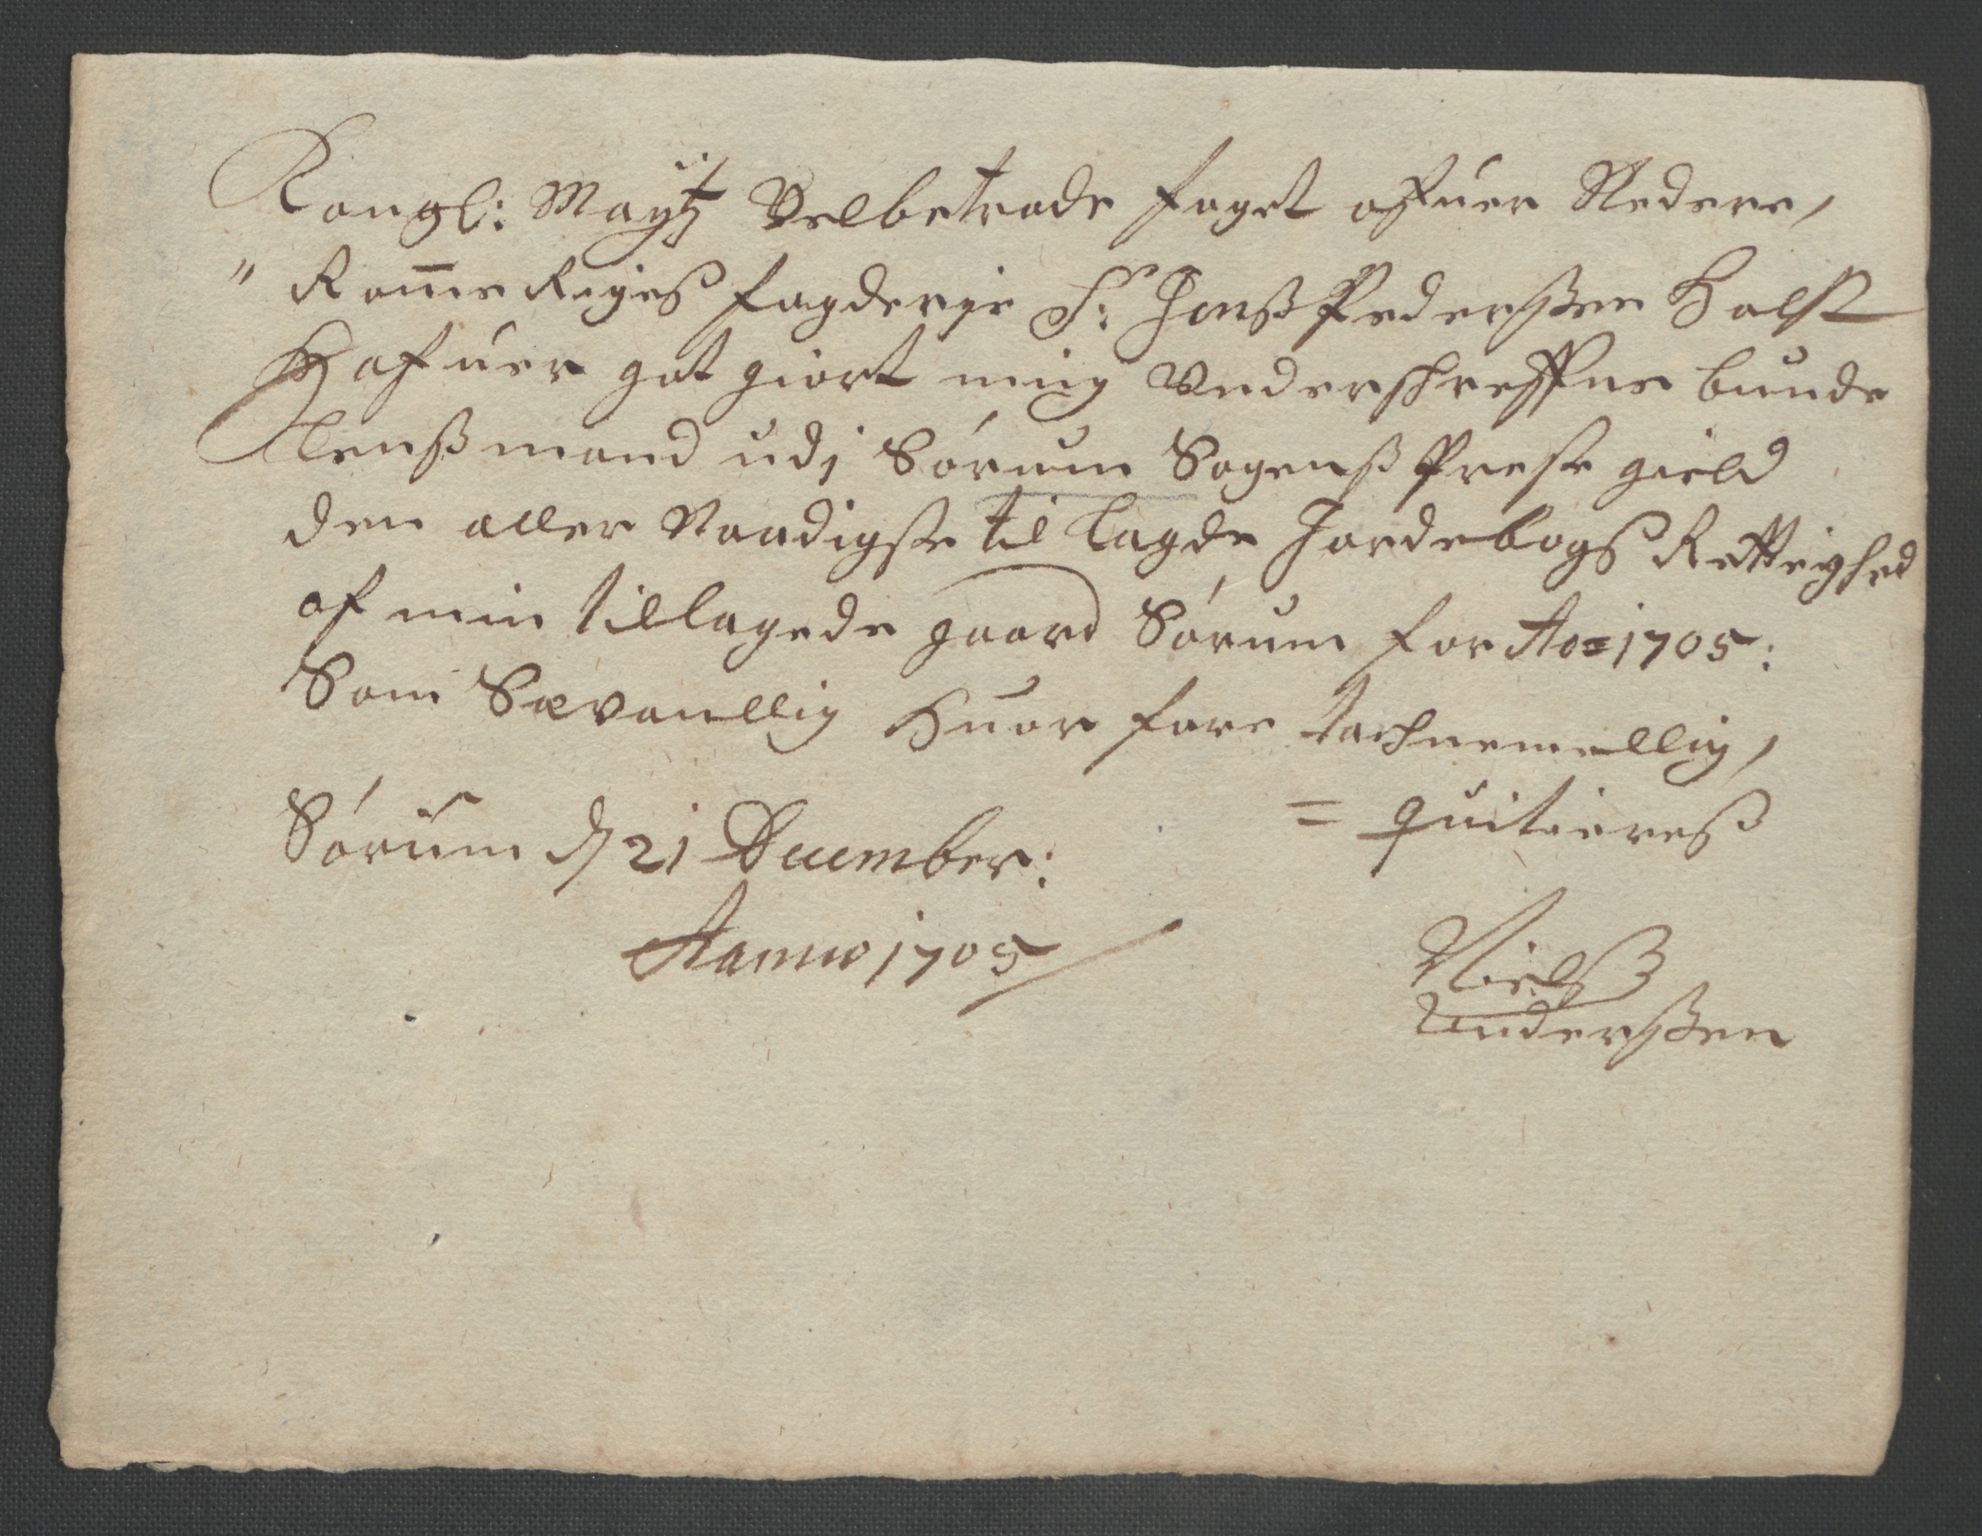 Kongl: Maytz Velbetrode foget ofuer Nedere,
" Rom̄e Riges fogderje Sr: Jenß Pederßen Holst
Hafuer got giort mig Underschreffne bunde
lenßmand udj Sørum Sogenß Preste gield
den aller Naadigste til lagde Jordebogs Retteighed
af min tillagede gaard Sørum for Ao= 1705:
Som Sævanllig huor fore tachnemellig,
= quiteereß
Sørum d 21 December:
Aanno 1705
Nielß
Anderßen